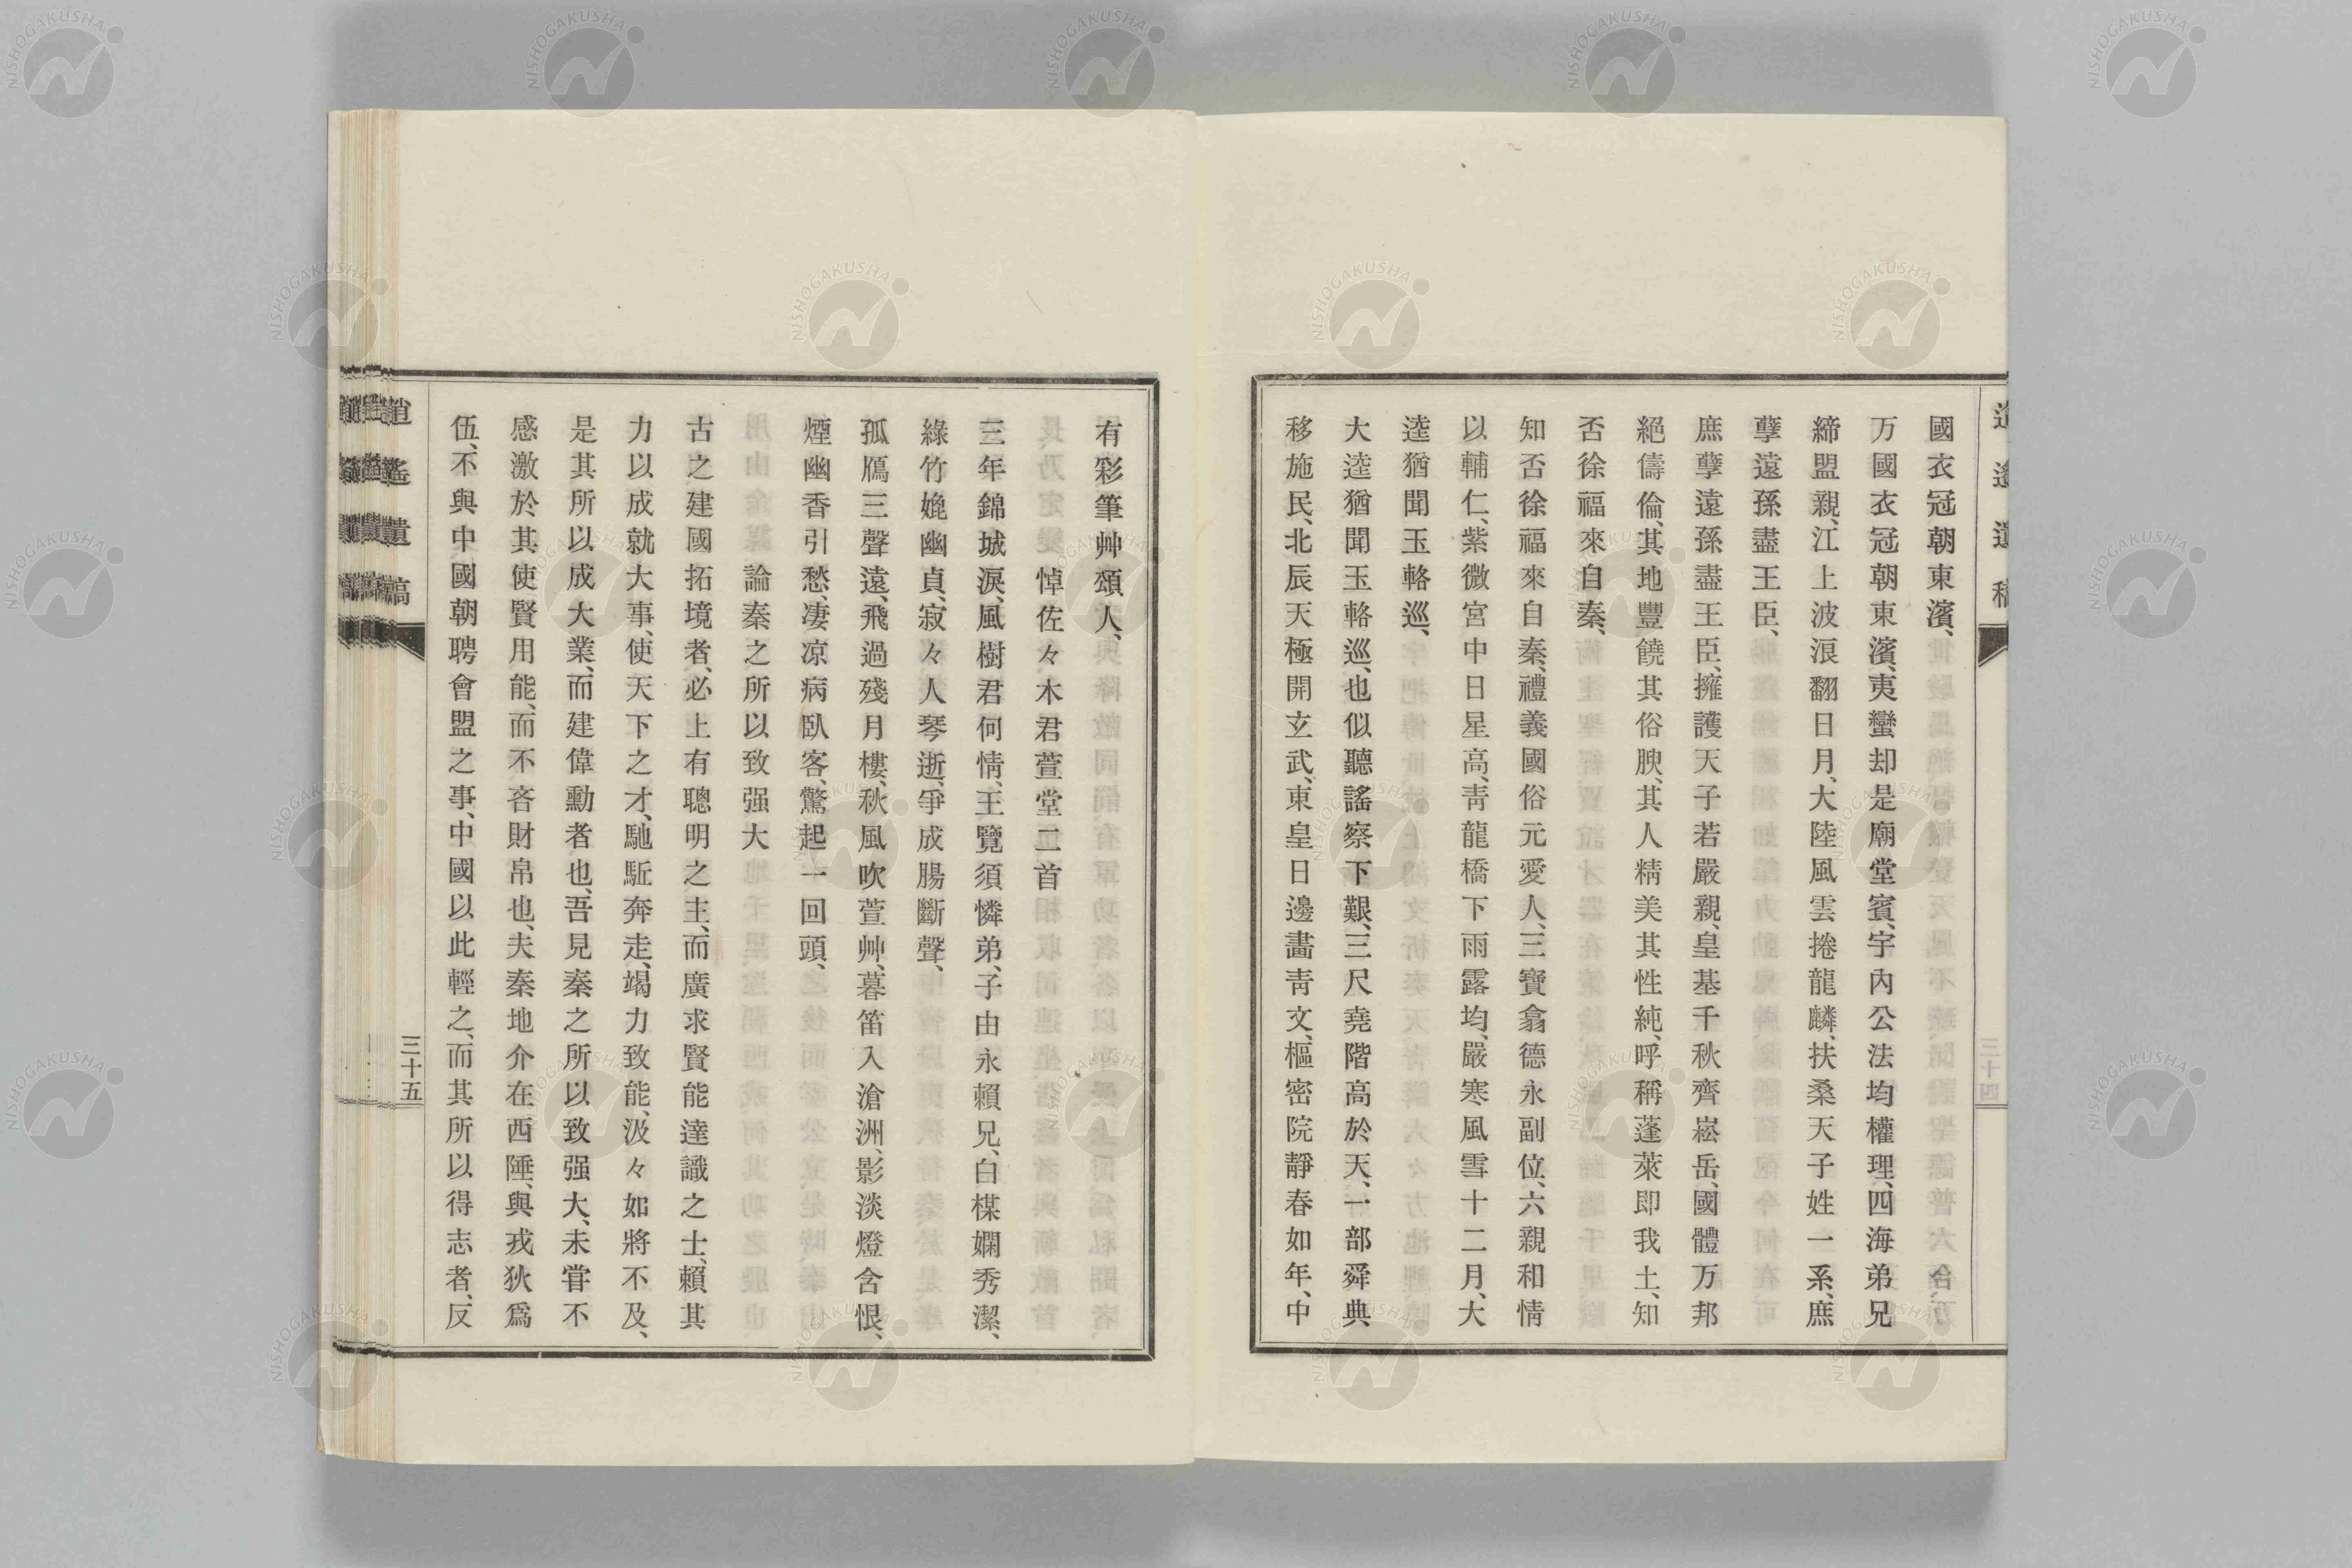 國衣冠朝東濱、
万國衣冠朝東濱、夷蠻却是廟堂賓、宇內公法均權理、四海弟兄
締盟親、江上波浪翻日月、大陸風雲捲龍麟、扶桑天子姓一系、庶
孽遠孫盡王臣、
庶孽遠孫盡王臣、擁護天子若嚴親、皇基千秋齊崧岳、國體万邦
絕儔倫、其地豐饒其俗腴、其人精美其性純、呼稱蓬萊即我土、知
否徐福來自秦、
知否徐福來自秦、禮義國俗元愛人、三寶翕德永副位、六親和情
以輔仁、紫微宮中日星高、靑龍橋下雨露均、嚴寒風雪十二月、大
逵猶聞玉輅巡、
大逵猶聞玉輅巡、也似聽謠察下艱、三尺堯階高於天、一部舜典
移施民、北辰天極開玄武、東皇日邊畵靑文、樞密院靜春如年、中
有彩筆艸頌人、
悼佐々木君萱堂二首
三年錦城淚、風樹君何情、王覽須憐弟、子由永賴兄、白楳嫻秀潔、
綠竹婏幽貞、寂々人琴逝、爭成腸斷聲、
孤鴈三聲遠、飛過殘月樓、秋風吹萱艸、暮笛入滄洲、影淡燈含恨、
煙幽香引愁、凄凉病臥客、驚起一回頭、
論秦之所以致强大
古之建國拓境者、必上有聰明之主、而廣求賢能達識之士、賴其
力以成就大事、使天下之才、馳駈奔走、竭力致能、汲々如將不及、
是其所以成大業、而建偉勳者也、吾見秦之所以致强大、未甞不
感激於其使賢用能、而不吝財帛也、夫秦地介在西陲、與戎狄爲
伍、不與中國朝聘會盟之事、中國以此輕之、而其所以得志者、反
逍遙遺稿
三十五